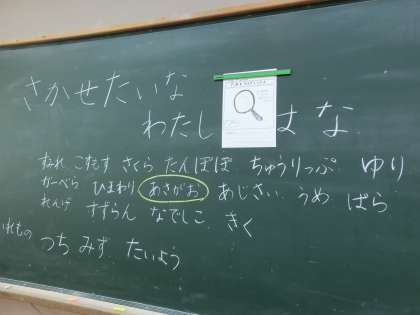 さかせたいな
わたし は な
すみれ こすもす さくら たんぽぽ ちゅうりっぷ ゆり
がーべら ひまわり あさがお あじさい うめ ばら
れんげ すずらん なでしこ きく
いれもの つち みず たいよう